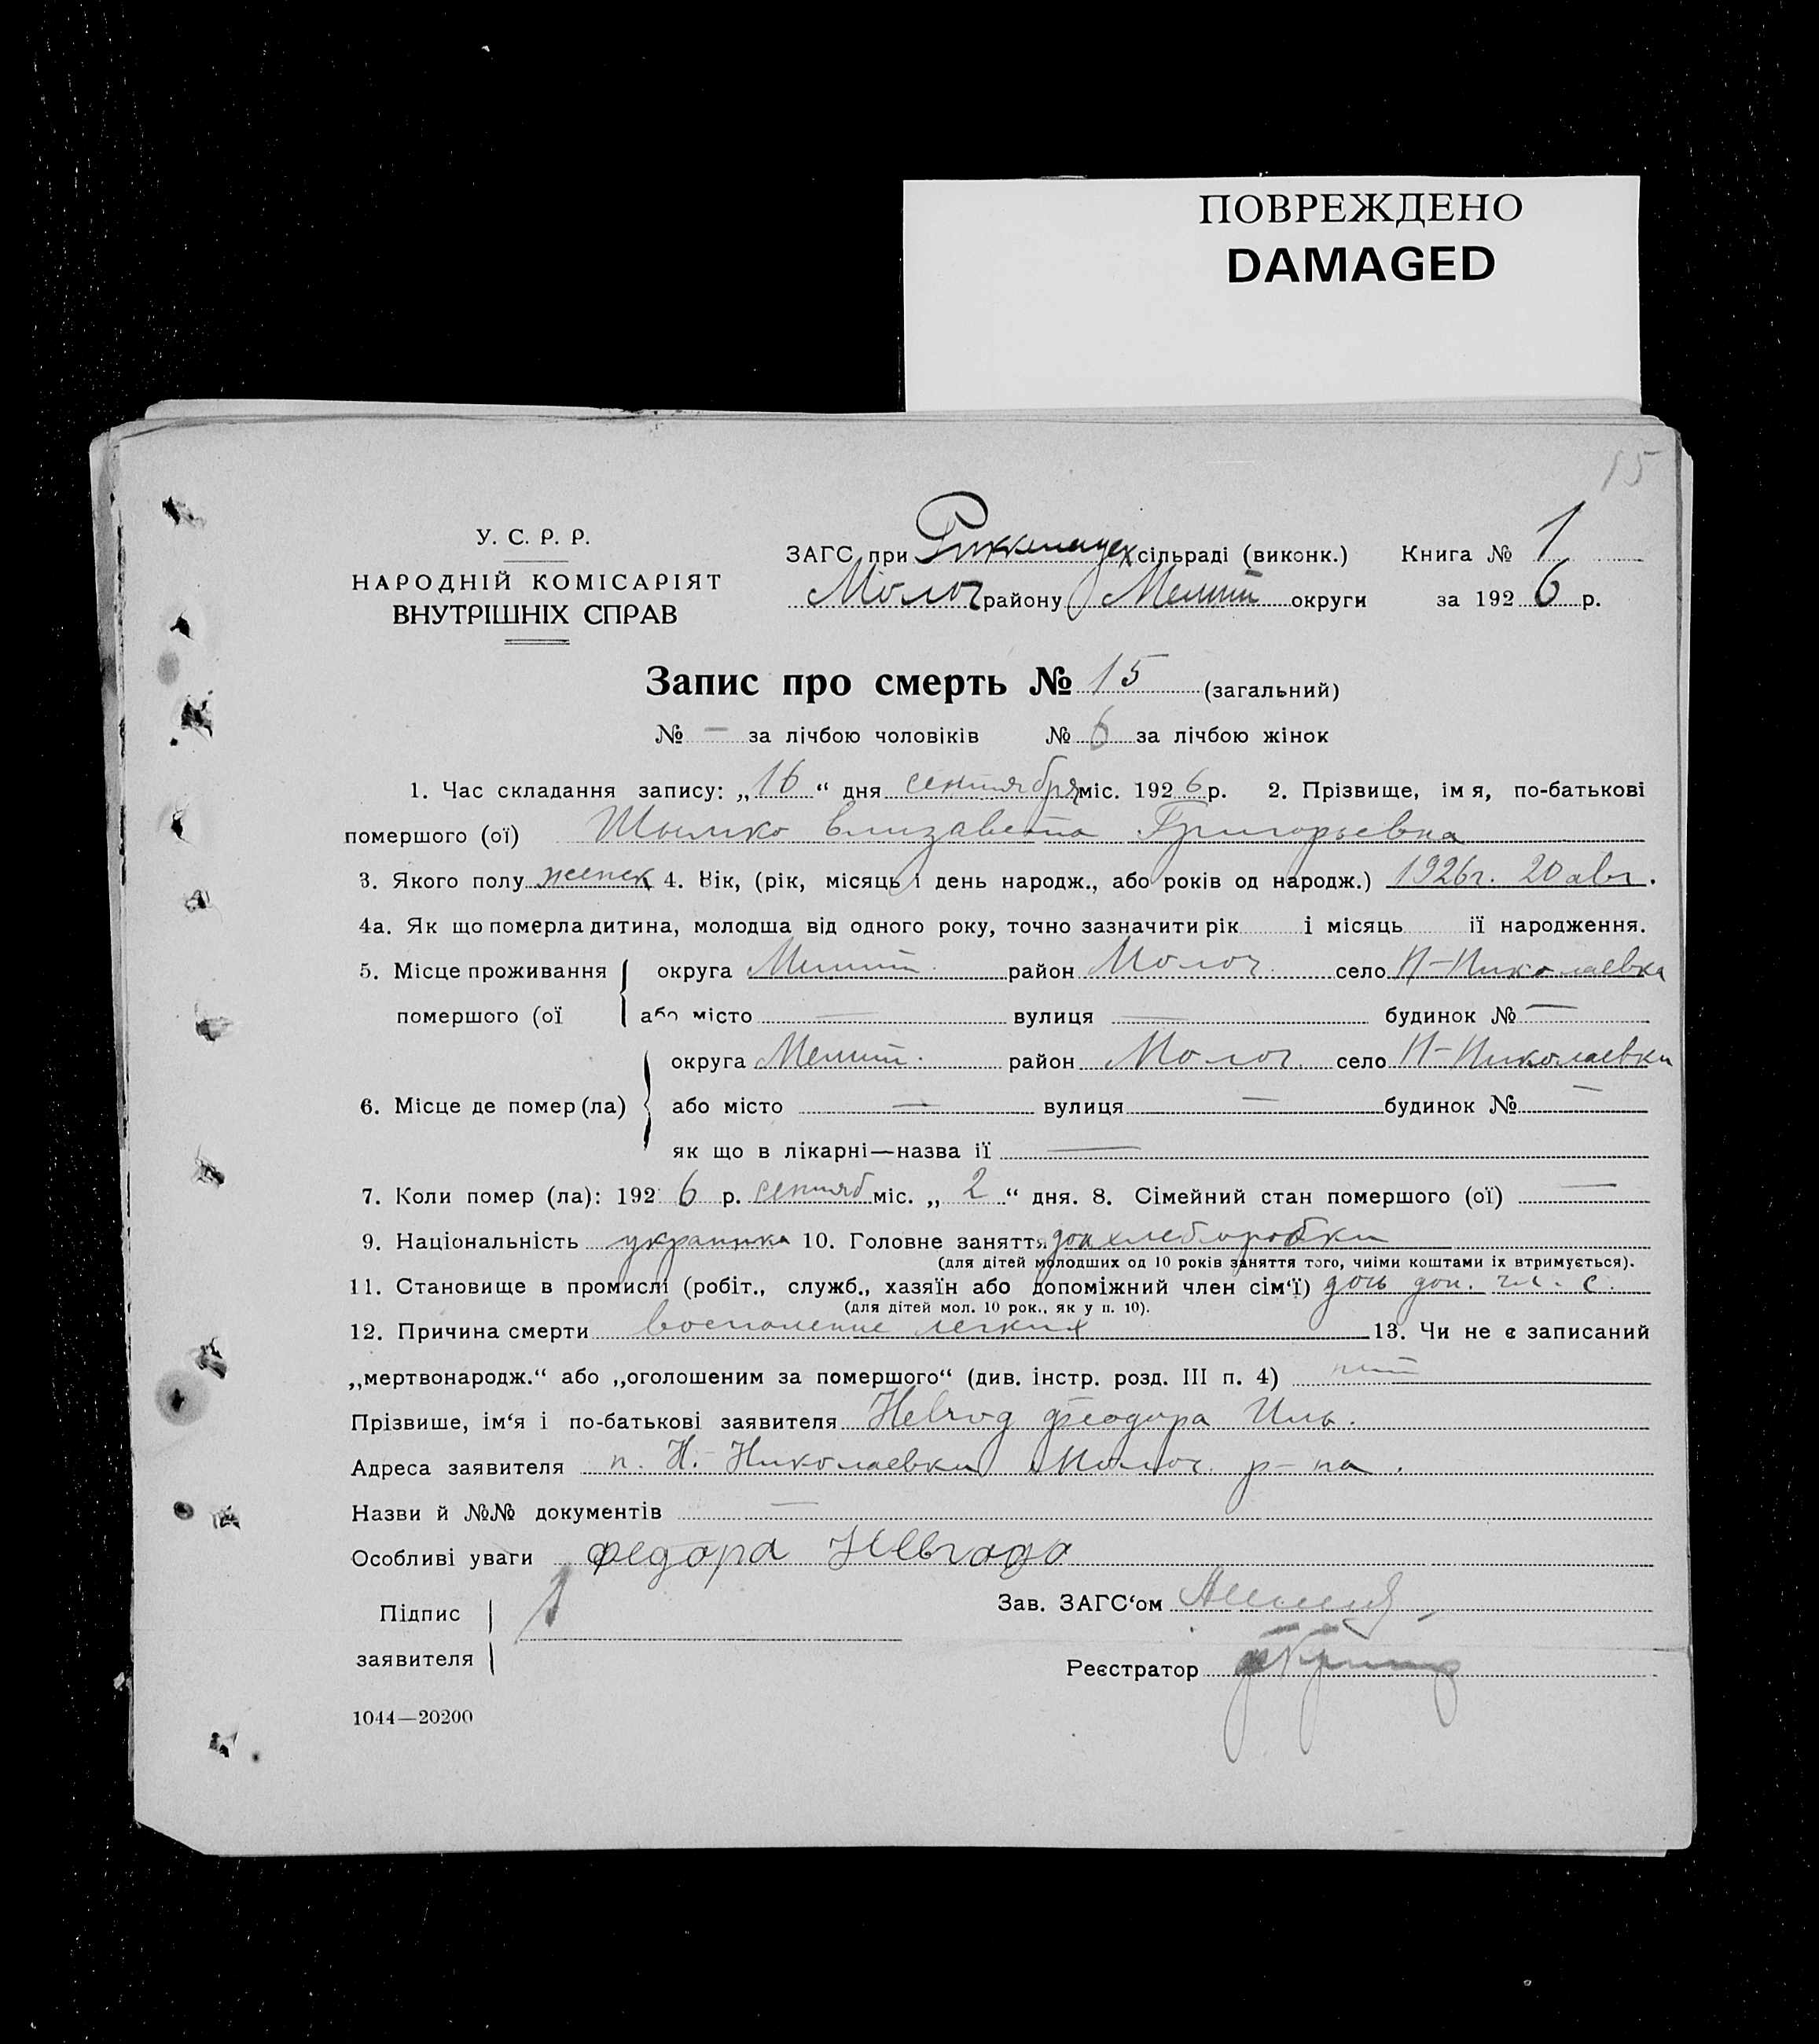 ПОВРЕЖДЕНО
DAMAGED
15
У. С. Р. Р.
НАРОДНІЙ КОМІСАРІЯТ
ВНУТРІШНІХ СПРАВ
ЗАГС при Риккенауск сільраді (виконк.) Книга № 1
Молоч району Мелит округи за 1926 р.
Запис про смерть № 15 (загальний)
№ — за лічбою чоловіків № 6 за лічбою жінок
1. Час складання запису: „16“ дня сентября міс. 1926 р. 2. Прізвище, імя, по-батькові
помершого (ої) Елизавета Григорьевна
3. Якого полу женск 4. Вік, (рік, місяць і день народж., або років од народж.) 1926г. 20 авг.
4а. Як що померла дитина, молодша від одного року, точно зазначити рік і місяць її народження.
5. Місце проживання округа Мелит. район Молоч. село Н-Николаевка
помершого (ої або місто — вулиця — будинок № —
округа Мелит. район Молоч. село Н-Николаевка
6. Місце де помер(ла) або місто — вулиця — будинок № —
як що в лікарні—назва її —
7. Коли помер (ла): 1926 р. сентяб міс. „2“ дня. 8. Сімейний стан помершого (ої) —
9. Національність украинка 10. Головне заняття хлеборобки
(для дітей молодших од 10 років заняття того, чиіми коштами іх втримується).
11. Становище в промислі (робіт., служб., хазяїн або допоміжний член сім‘ї) дочь доп. чл. с.
(для дітей мол. 10 рок., як у п. 10).
12. Причина смерти воспаление легких 13. Чи не є записаний
„мертвонародж.“ або „оголошеним за помершого“ (див. інстр. розд. III п. 4) нет
Прізвише, ім‘я і по-батькові заявителя Невгод Феодора Иль.
Адреса заявителя п. Н.-Николаевки Молоч. р-на.
Назви й №№ документів —
Особливі уваги Федора Невгода
Підпис
заявителя
Зав. ЗАГС‘ом
Реєстратор
1044—20200